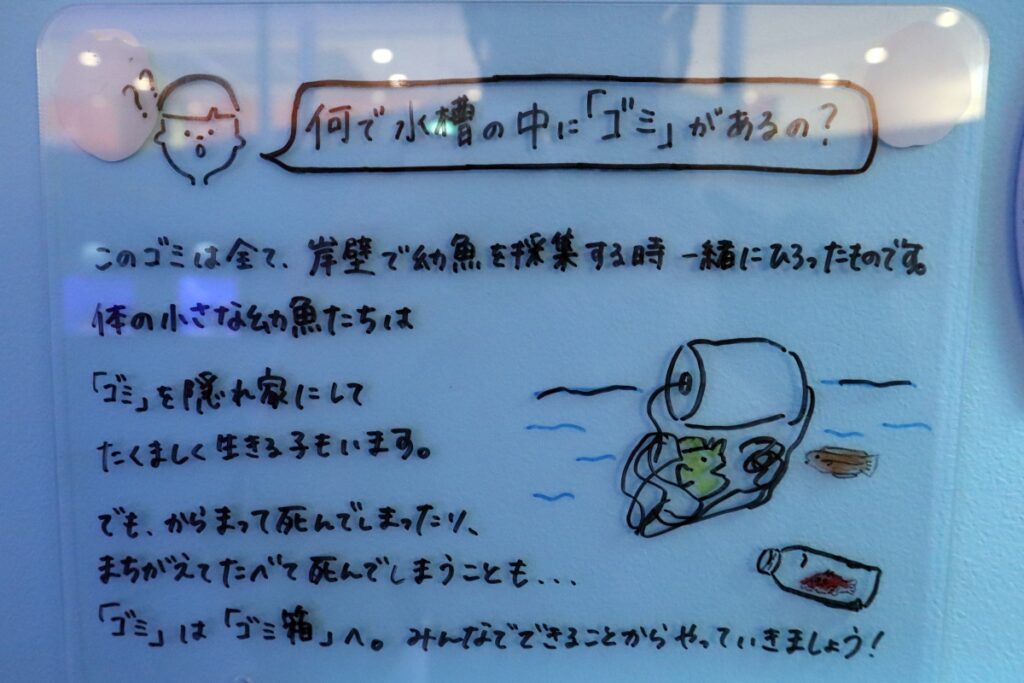 ??
何で水槽の中に「ゴミ」があるの?
このゴミは全て、岸壁で幼魚を採集する時 一緒にひろったものです。
体の小さな幼魚たちは
「ゴミ」を隠れ家にして
たくましく生きる子もいます。
でも、からまって死んでしまったり、
まちがえてたべて死んでしまうことも...
「ゴミ」は「ゴミ箱」へ。みんなでできることからやっていきましょう!